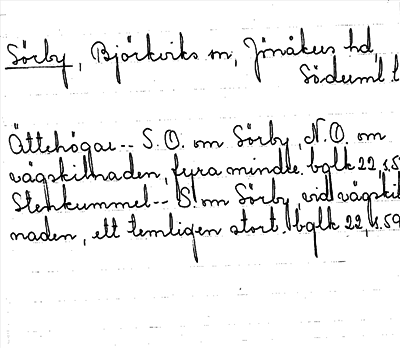 Sörby, Björkviks sn, Jönåkers hd,
Söderml. l
Ättehögar -- S.O. om Sörby, N.O. om
vägskillnaden, fyra mindre. bglk 22, s.5
Stenkummel -- S. om Sörby, vid vägskil
naden, ett temligen stort. bglk 22, s.59